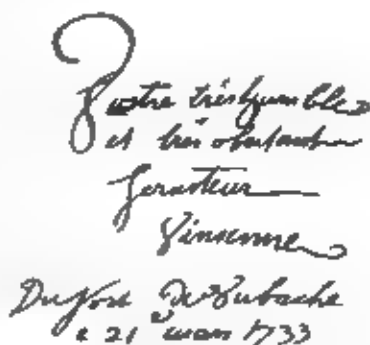 Vostre trèshumble
et très obeissant
Serviteur
Vinsenne
Du fort De Oubache
e 21 mars 1733